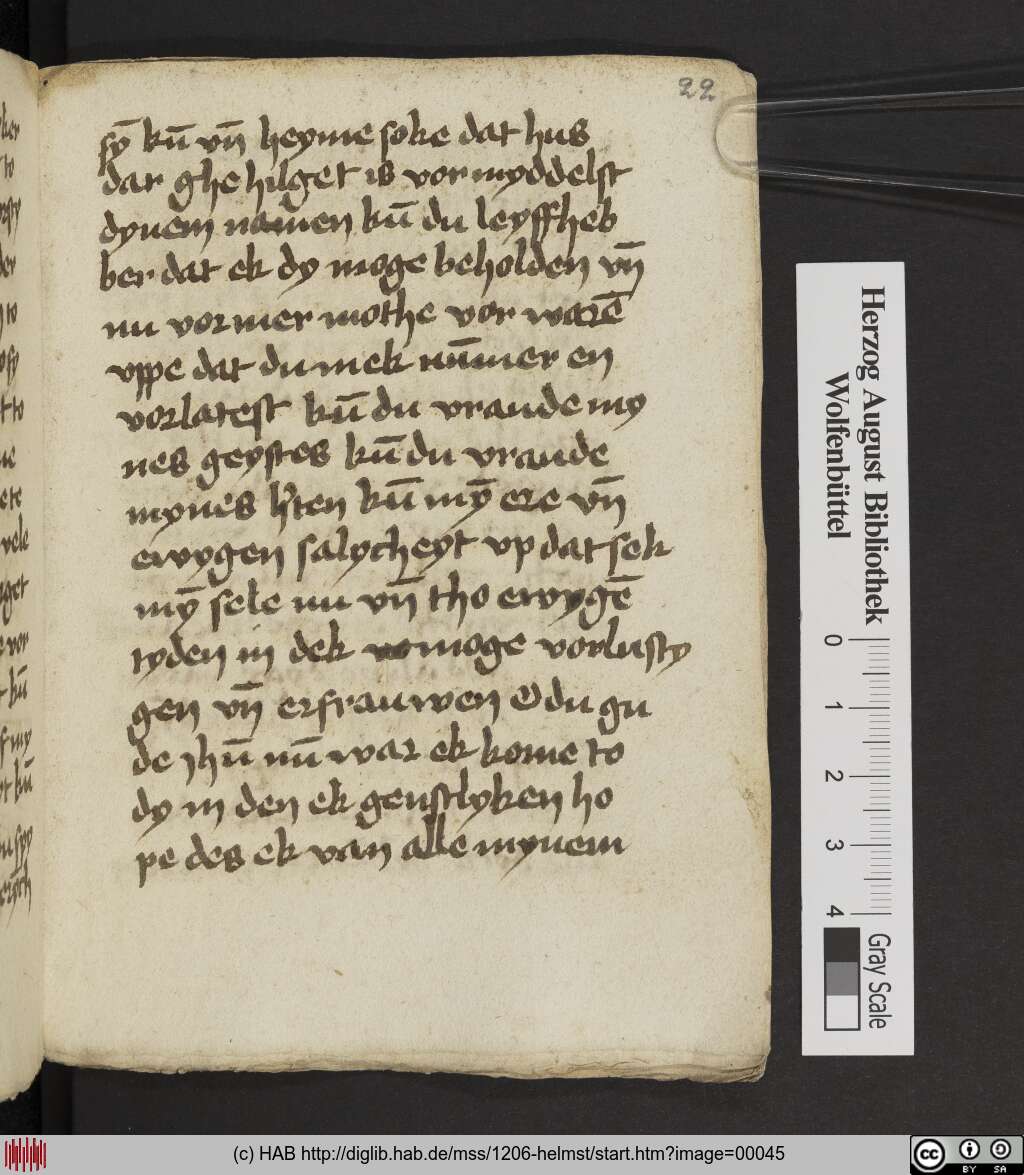 22
sȳ kū vn̄ heyme soke dat hus
dat ghe hilget is vormyddelst
dynem namen kū du leyffheb
ber dat ek dy moge beholden vn̄
nu vormer mothe vor warē
vppe dat du mek nūmer en
vorlatest kū du vraude my
nes geystes kū du vraude
mynes h'ten kū mȳ ere vn̄
ewygen salycheyt vp dat sek
mȳ sele nu vn̄ tho ewygē
tyden in dek moge vorlusty
gen vn̄ erfrauwen O du gu
de jhū nū war ek kome to
dy in den ek genstlyken ho
pe des ek van alle mynem
Herzog August Bibliothek
Wolfenbüttel
0 1 2 3 4
Gray Scale
(c) HAB http://diglib.hab.de/mss/1206-helmst/start.htm?image=00045
cc BY SA